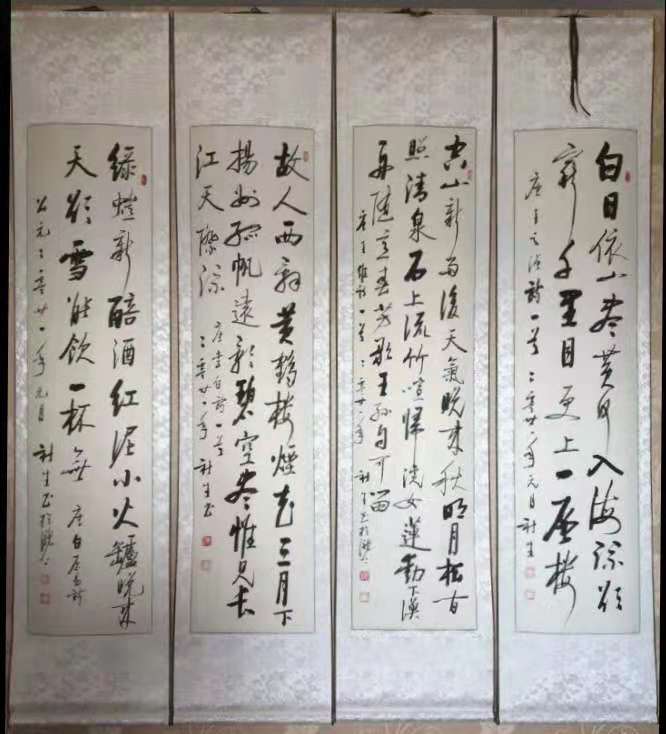 白日依山尽黄河入海流欲
窮千里目更上一层楼
唐王之涣詩一首 二零廿一年元月
空山新雨後天氣晚来秋明月松间
照清泉石上流竹喧归浣女蓮動下渔
舟随意春芳歇王孙自可留
唐王維詩一首 二零廿一年
故人西辞黄鹤楼烟花三月下
揚州孤帆遠影碧空尽惟見長
江天際流 唐李白詩一首
二零廿一年
绿螘新醅酒红泥小火罏晚来
天欲雪能饮一杯無 唐白居易詩
公元二零廿一年元月